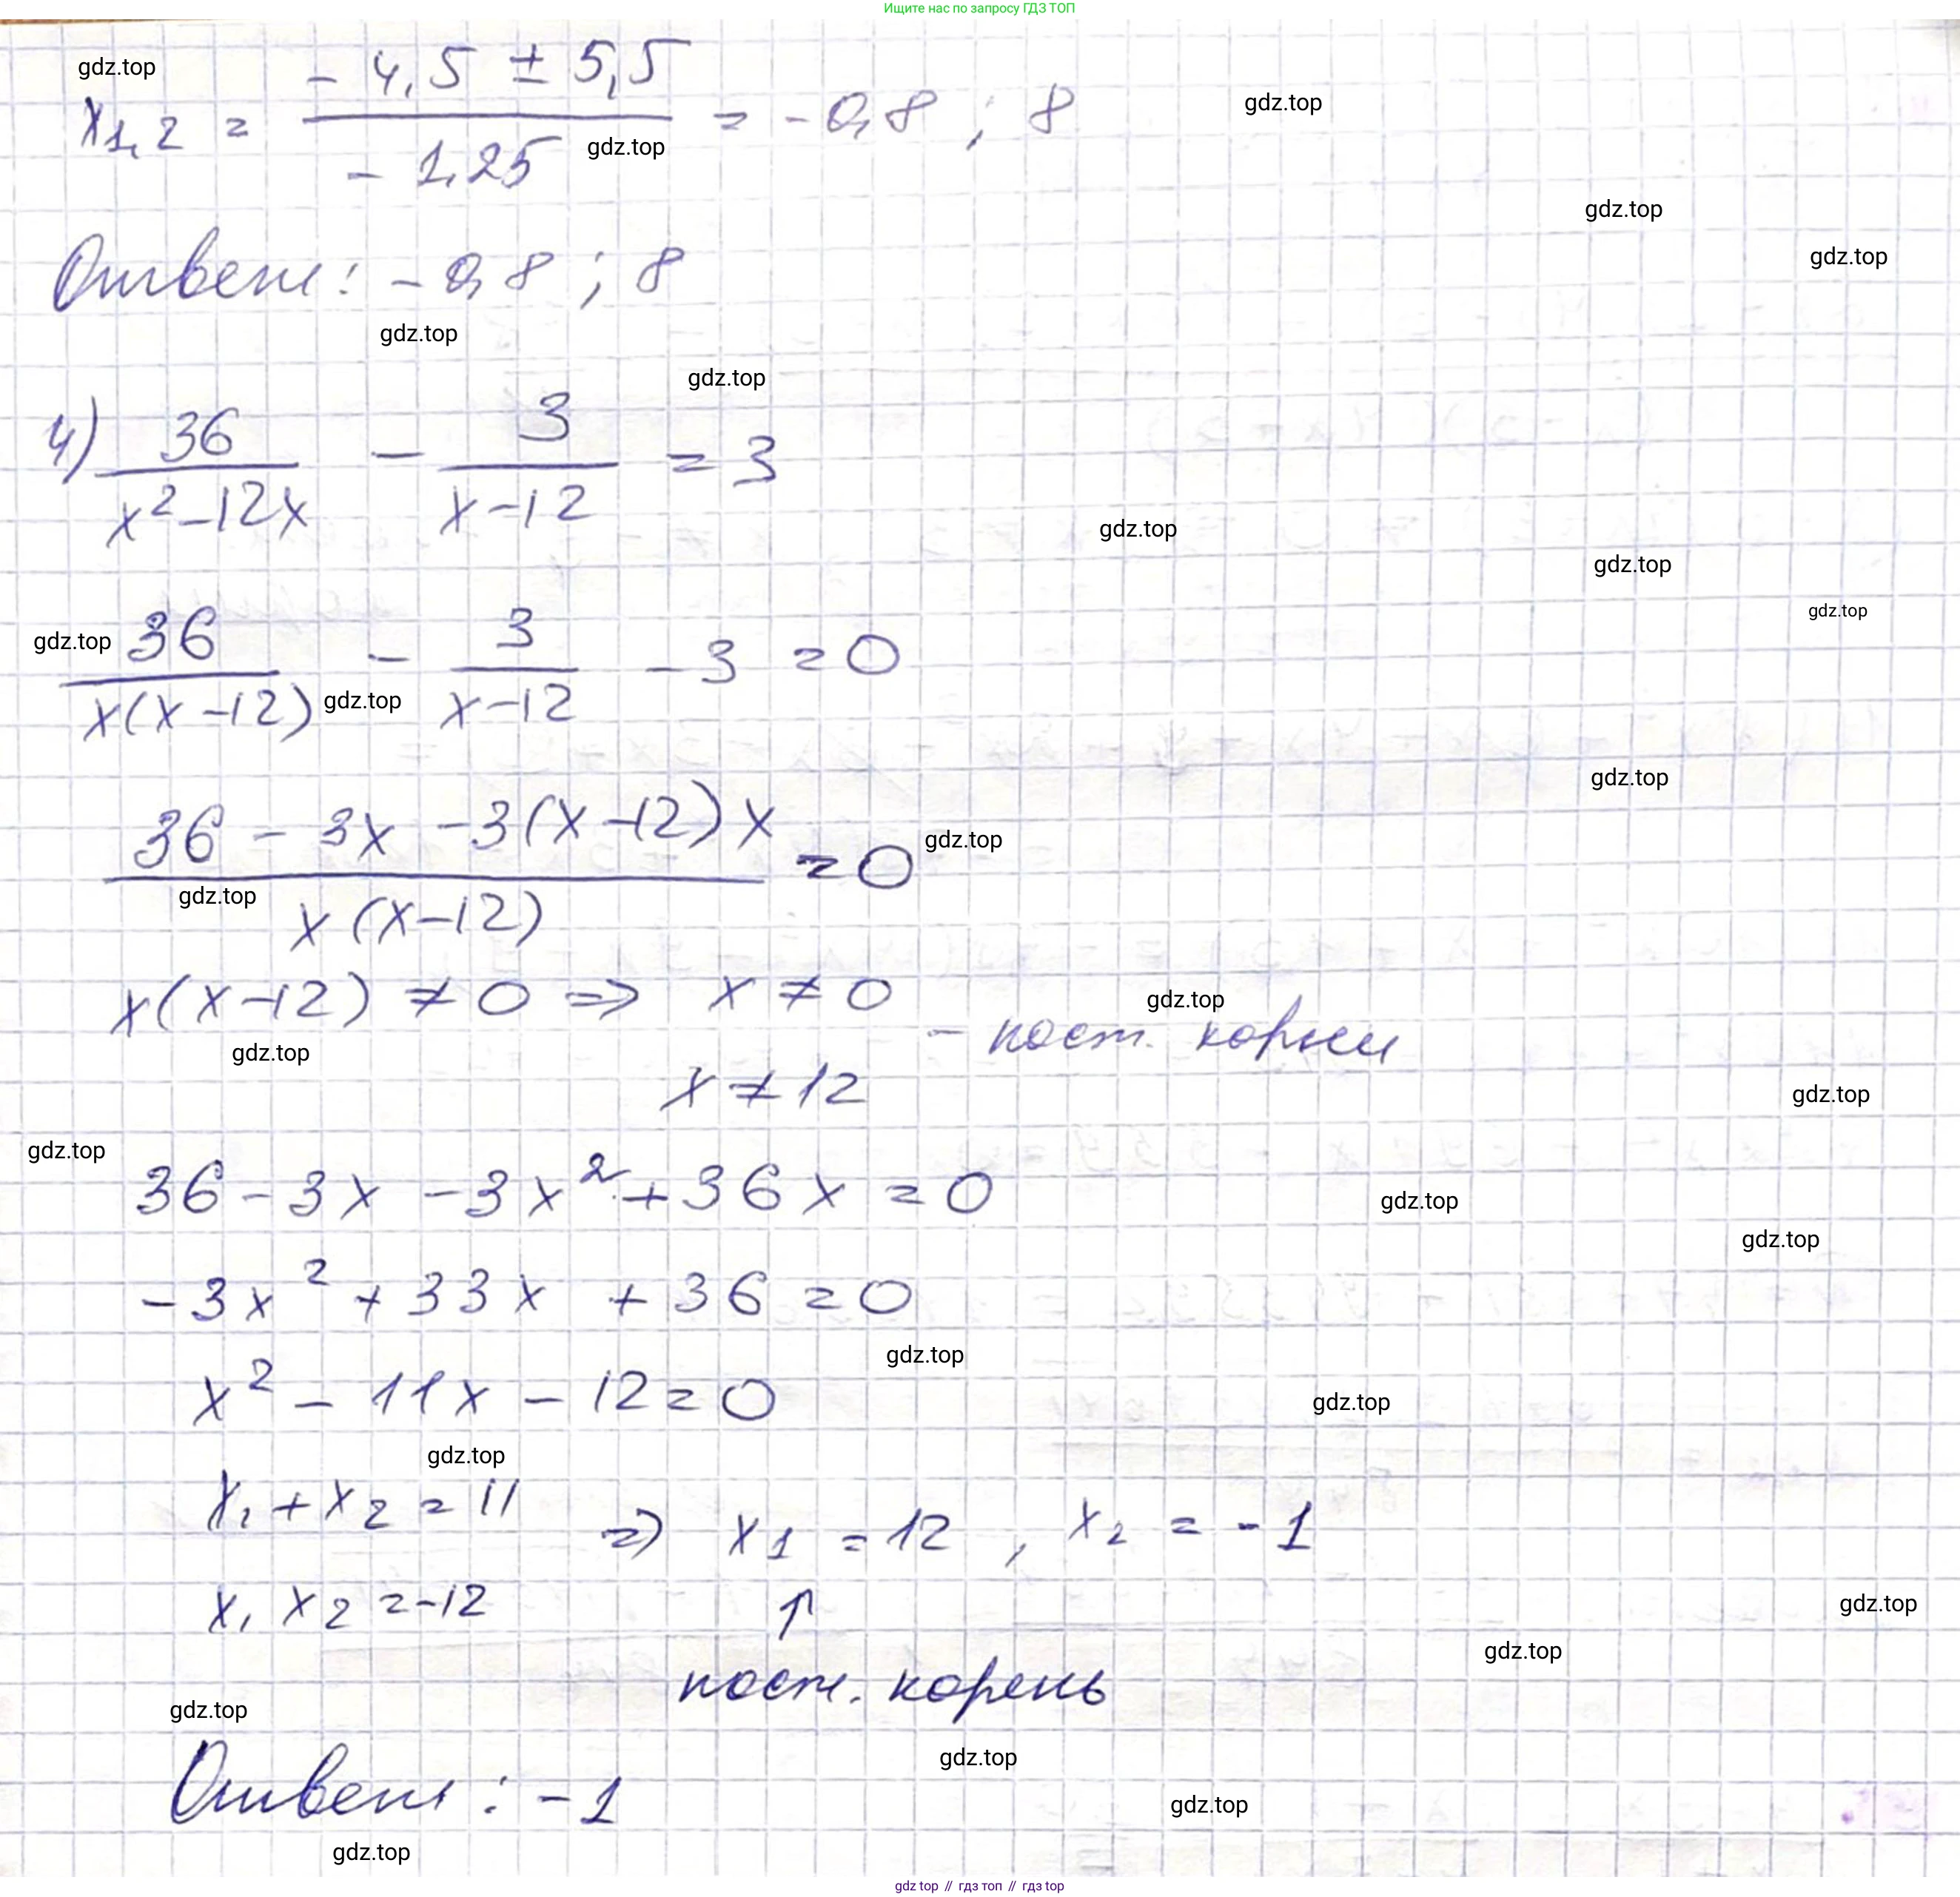 Ищите нас по запросу ГДЗ ТОП
gdz.top
x₁,₂ = (-4,5 ± 5,5)/(-1,25) = -0,8 ; 8
gdz.top
gdz.top
gdz.top
gdz.top
Ответ: -0,8 ; 8
gdz.top
gdz.top
4) 36/(x²-12x) - 3/(x-12) = 3
gdz.top
gdz.top
gdz.top
gdz.top
36/(x(x-12)) - 3/(x-12) - 3 = 0
gdz.top
gdz.top
(36 - 3x - 3(x-12)x)/(x(x-12)) = 0
gdz.top
gdz.top
x(x-12) ≠ 0 => x ≠ 0
gdz.top
- пост. корни
gdz.top
x ≠ 12
gdz.top
gdz.top
36 - 3x - 3x² + 36x = 0
gdz.top
gdz.top
-3x² + 33x + 36 = 0
gdz.top
x² - 11x - 12 = 0
gdz.top
gdz.top
x₁ + x₂ = 11
=> x₁ = 12 , x₂ = -1
x₁ x₂ = -12
↑
gdz.top
gdz.top
пост. корень
gdz.top
gdz.top
Ответ: -1
gdz.top
gdz.top
gdz top // гдз топ // гдз top